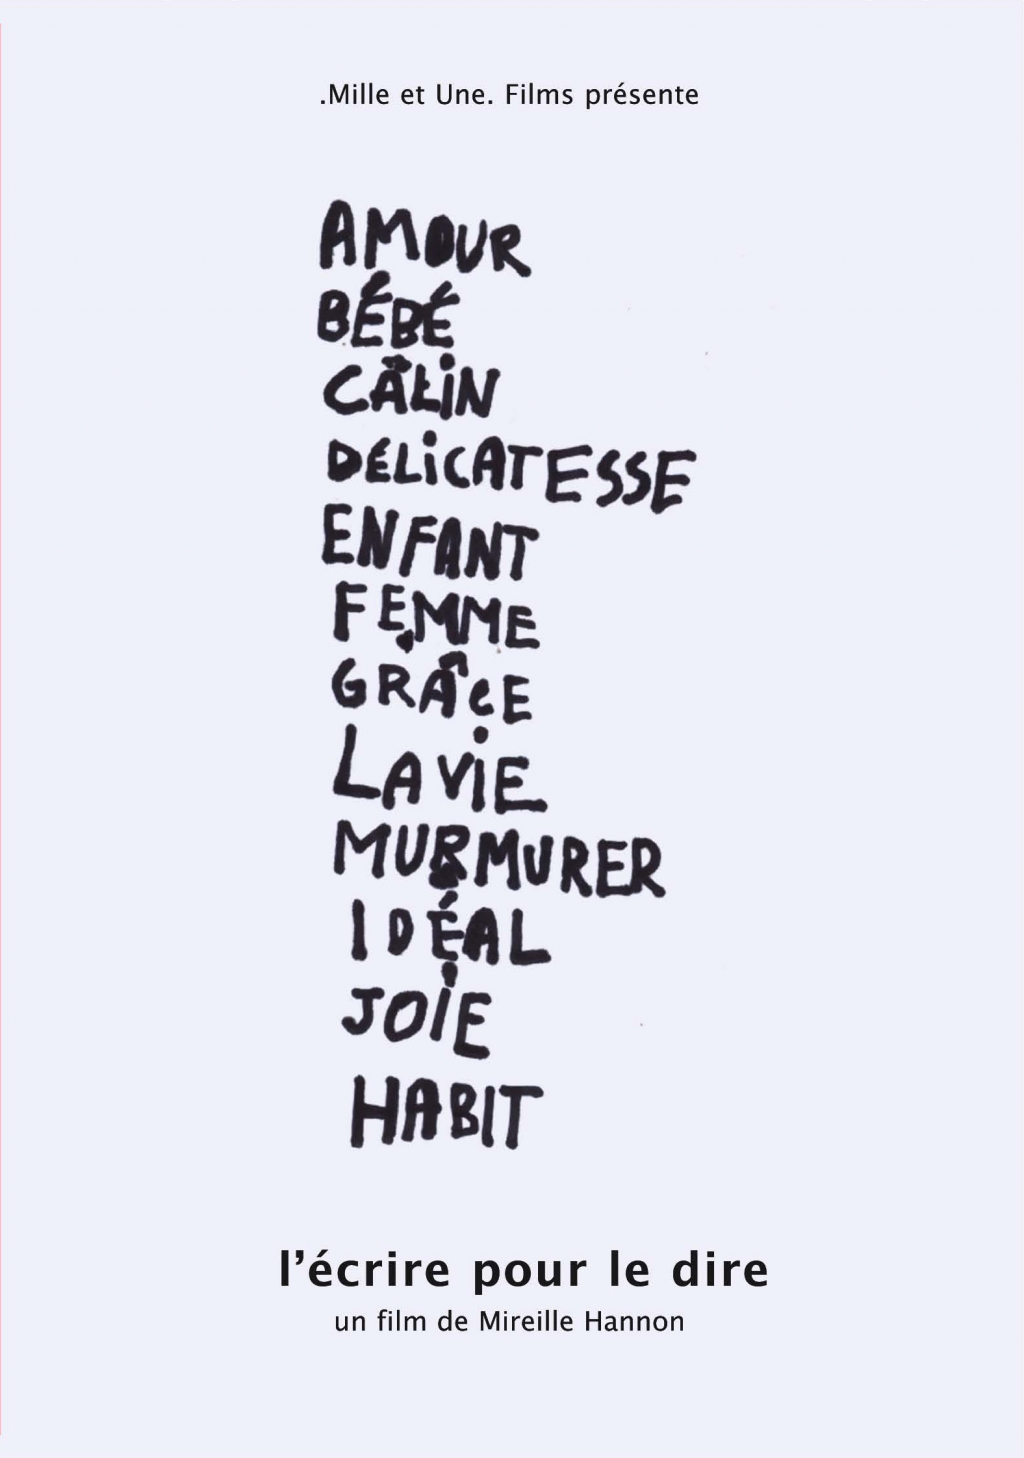 .Mille et Une. Films présente
AMOUR
BÉBÉ
CÂLiN
DÉLiCATESSE
ENFANT
FEMME
GRÂCE
LA ViE
MURMURER
IDÉAL
JOiE
HABIT
l'écrire pour le dire
un film de Mireille Hannon